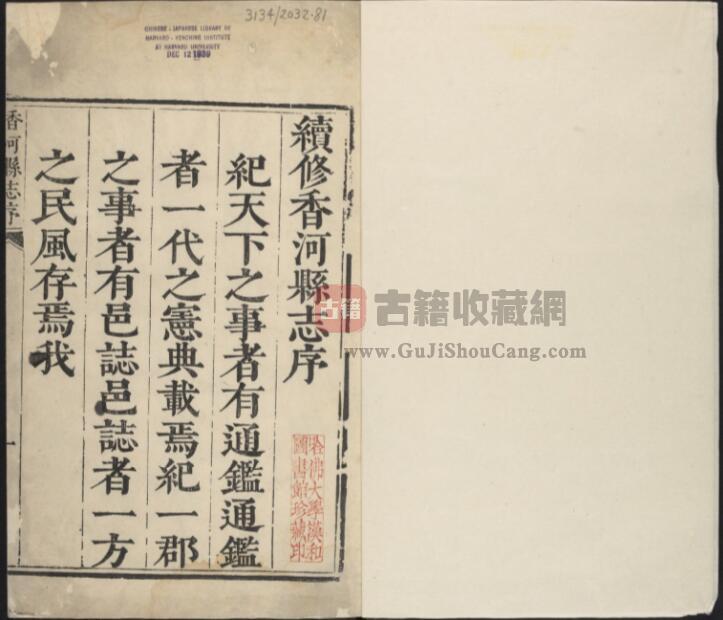 3134/2032.81
CHINESE - JAPANESE LIBRARY OF
HARVARD - YENCHING INSTITUTE
AT HARVARD UNIVERSITY
DEC 12 1939
續修香河縣志序
紀天下之事者有通鑑通鑑
者一代之憲典載焉紀一郡
之事者有邑誌邑誌者一方
之民風存焉我
香河縣志序
一
哈佛大學漢和
圖書館珍藏印
古籍
古籍收藏網
www.GuJiShouCang.com